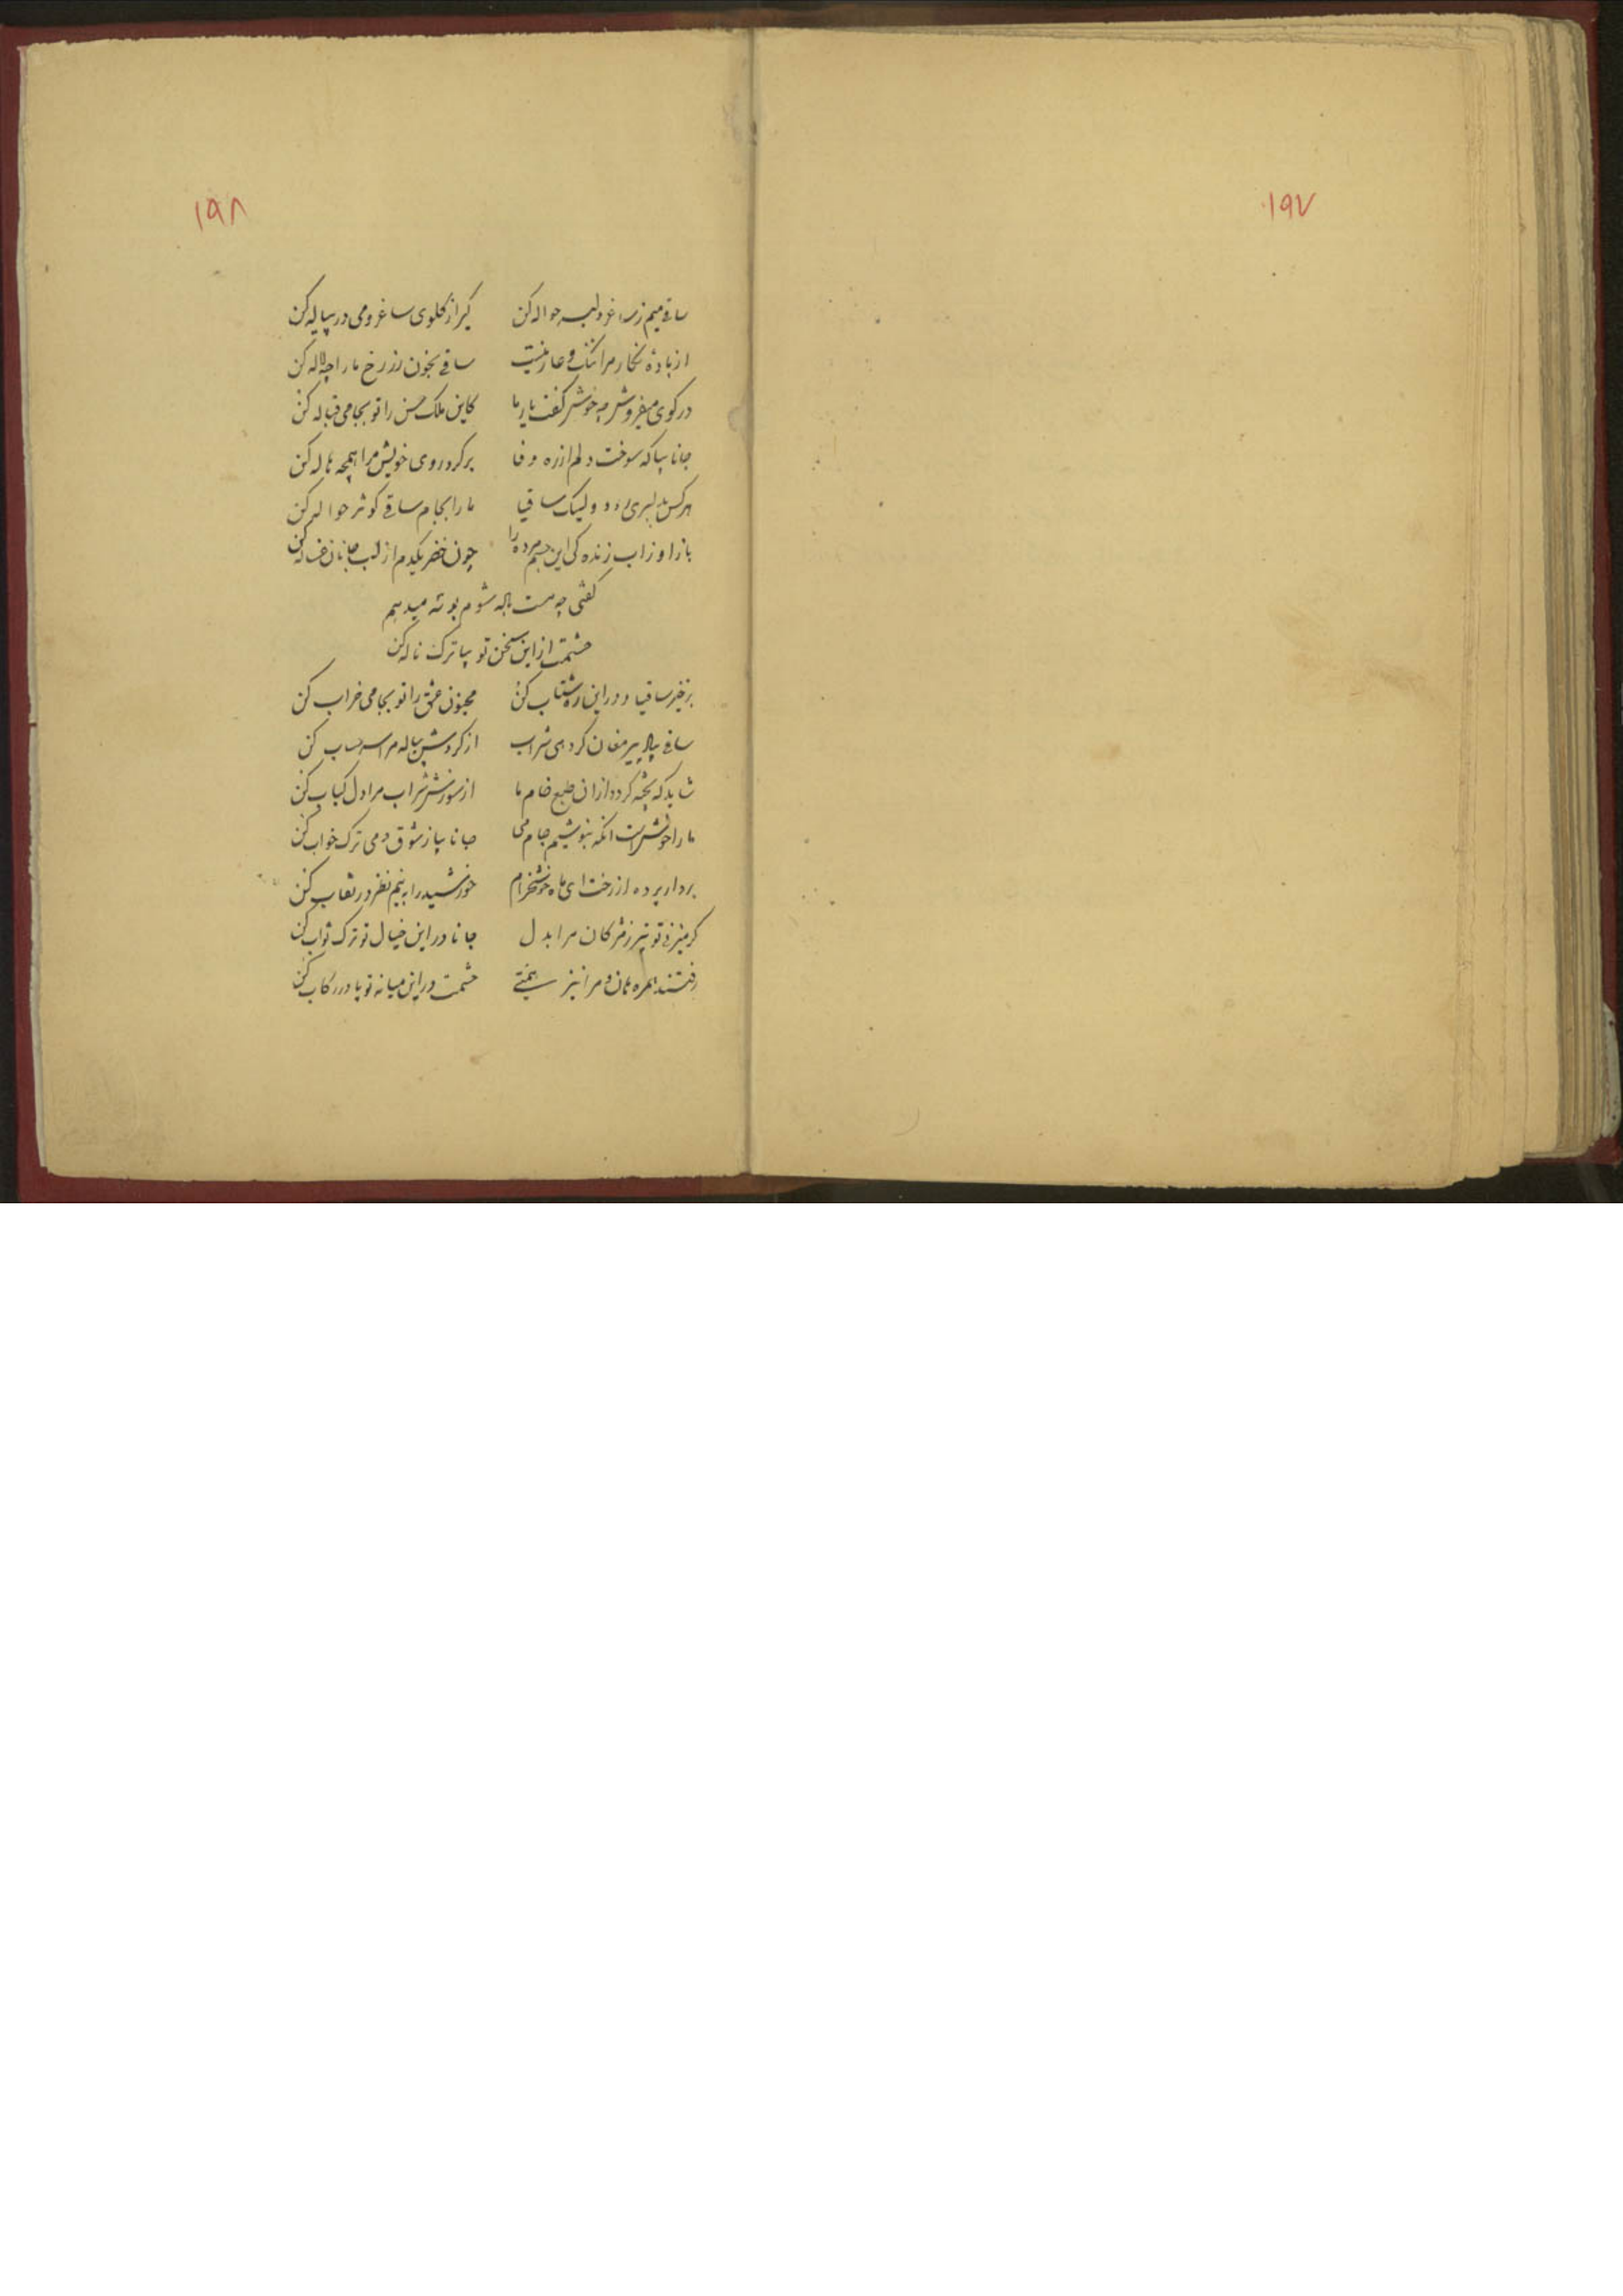 ۱۹۷
۱۹۸
ساقی میم ز ساغر و لب حواله کن کیر از کلوی ساغر و می در پیاله کن
از باده نکار مرا ننک و عار نیست ساقی بخون رز رخ ما را چه لاله کن
در کوی میفروش چه خوش کفت یار ما کاین ملک حسن را تو بجامی قباله کن
جانا بیا که سوخت دلم از ره وفا بر کرد روی خویش مرا همچه هاله کن
هر کس بدلبری ولیک ساقیا ما را بجام ساقی کوثر حواله کن
باز ا و زاب زنده کن این جسم مرده را چون خضر یکدم از لب جانان
کفتی چه مست باله شوم بوسه میدهم
حشمت از این سخن تو بیا ترک ناله کن
برخیز ساقیا و در این ره شتاب کن مجنون عشق را تو بجامی خراب کن
ساقی بیا به پیر مغان کردمی شراب از کردش پیاله مرا کن
شاید که پخته کردد از ان طبع خام ما از سوزش شراب مرا دل کباب کن
ما را خوش است انکه بنوشیم جام می جانا بیا ز شوق دمی ترک خواب کن
بردار پرده از رخت ای ماه خوشخرام خورشید را به نیم نظر در نقاب کن
کر میزنی تو تیر ز مژکان مرا بدل جانا در این خیال تو ترک ثواب کن
رفتند همرهان و مرا نیز حشمت در این میانه تو پا در رکاب کن